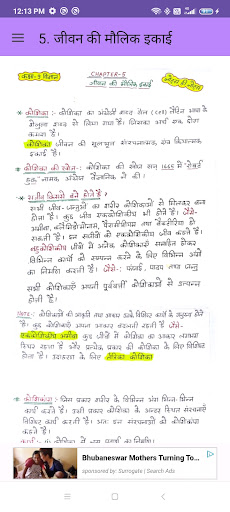 12:13 PM
5. जीवन की मौलिक इकाई
कक्षा-9 विज्ञान
CHAPTER-5
जीवन की मौलिक इकाई
* कोशिका :- कोशिका का अंग्रेजी शब्द सेल (cell) लैटिन भाषा के
शब्द से लिया गया है। जिसका अर्थ एक छोटा
कमरा है।
कोशिका जीवन की मूलभूत संरचनात्मक, एवं क्रियात्मक
इकाई है।
* कोशिका की खोज :- कोशिका की खोज सन् 1665 में "रॉबर्ट
हुक" नामक अंग्रेज वैज्ञानिक ने की।
* सजीव किससे बने होते हैं ?
सभी जीव-जन्तुओं का शरीर कोशिकाओं से मिलकर बना
होता है। कुछ जीव एककोशिकीय भी होते हैं। जैसे-
अमीबा, क्लैमिडोमोनास, पैरामीशियम तथा बैक्टीरिया हो
सकते हैं। इन सजीवों को एककोशिकीय जीव कहते हैं।
बहुकोशिकीय जीवों में अनेक कोशिकाएं समाहित होकर
विभिन्न कार्यों को सम्पन्न करने के लिए विभिन्न अंगों
का निर्माण करती हैं। जैसे:- फंजाई, पादप तथा जन्तु
सभी कोशिकाएँ अपनी पूर्ववर्ती कोशिकाओं से उत्पन्न
होती हैं।
NOTE:- कोशिकाओं की आकृति तथा आकार उनके विशिष्ट कार्यों के अनुरूप होते
हैं। कुछ कोशिकाएँ अपना आकार बदलती रहती हैं जैसे-
एककोशिकीय अमीबा कुछ जीवों में कोशिका का आकार लगभग
स्थिर रहता है और प्रत्येक प्रकार की कोशिका के लिए विशिष्ट
होता है। उदाहरण के लिए तंत्रिका कोशिका
* कोशिकांग :- जिस प्रकार शरीर के विभिन्न अंग भिन्न-भिन्न
कार्य करते हैं। उसी प्रकार कोशिका के अन्दर स्थित संरचनाएँ
विशिष्ट कार्य करती हैं। अतः इन संरचनाओं को कोशिकांग
कहते हैं।
Bhubaneswar Mothers Turning To...
sponsored by: Surrogate | Search Ads